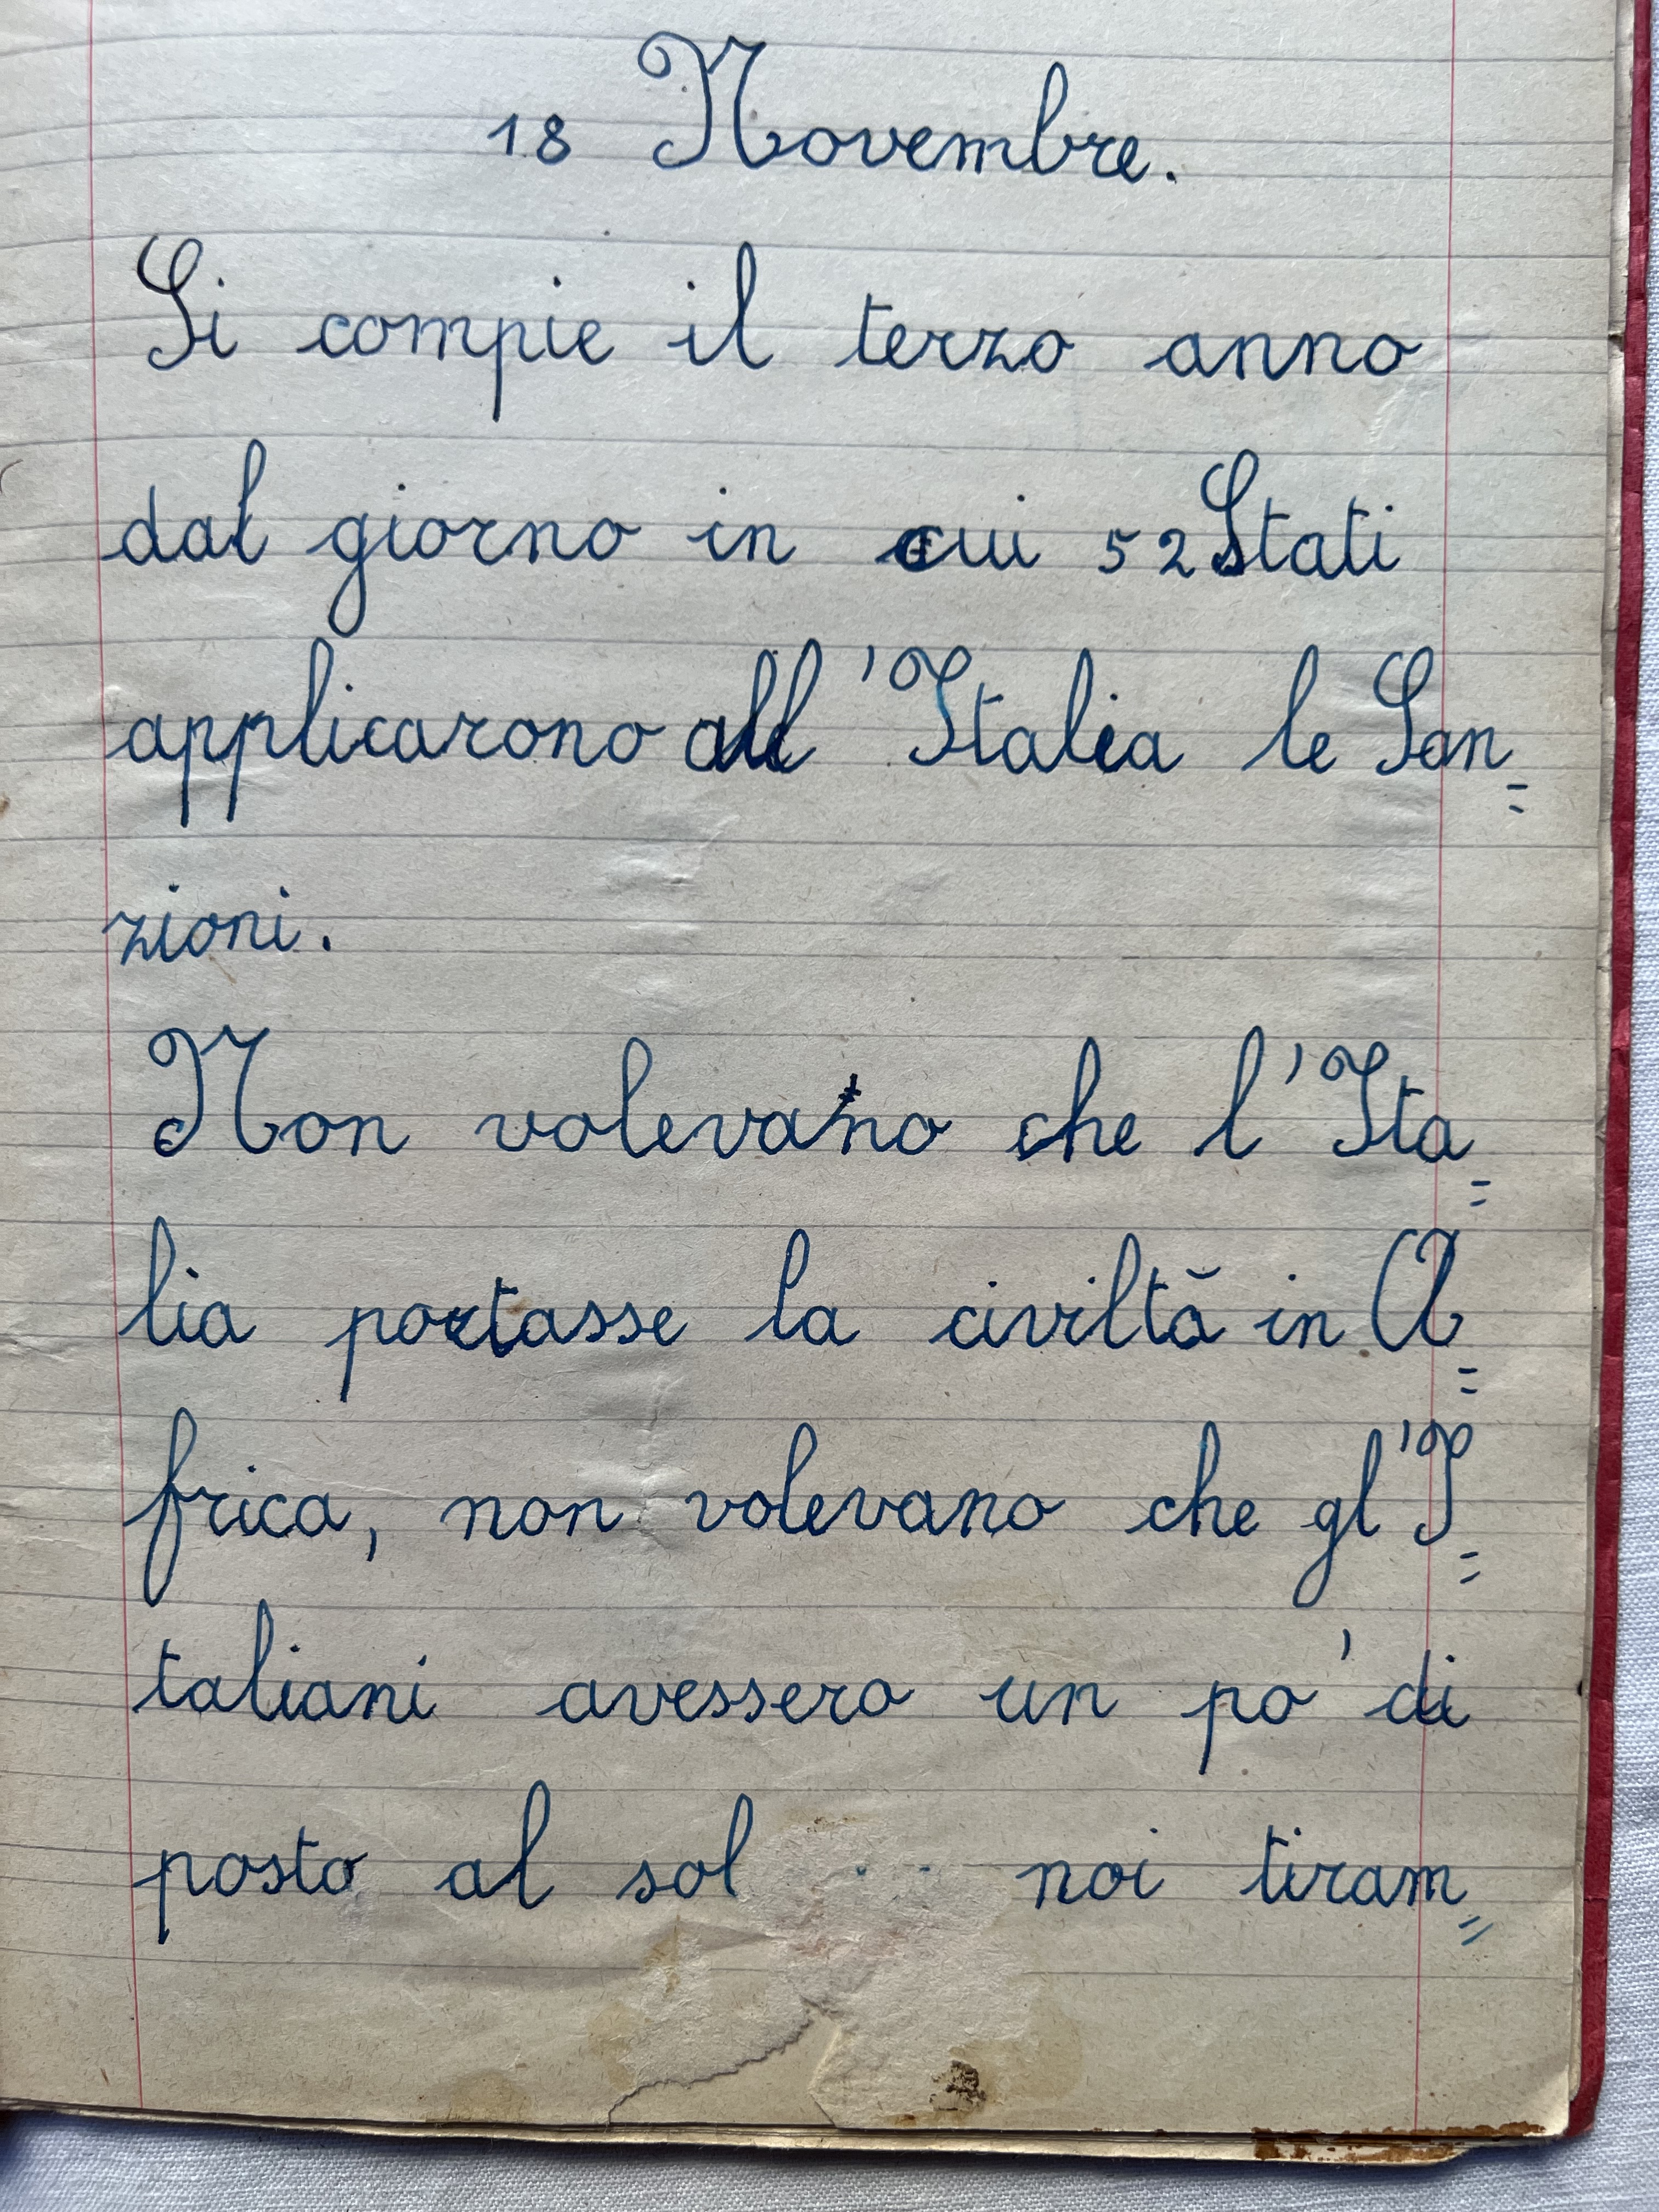 18 Novembre.
Si compie il terzo anno
dal giorno in cui 52 Stati
applicarono all'Italia le San=
zioni.
Non volevano che l'Ita=
lia portasse la civiltà in A=
frica, non volevano che gl'I=
taliani avessero un po' di
posto al sol .. noi tiram=